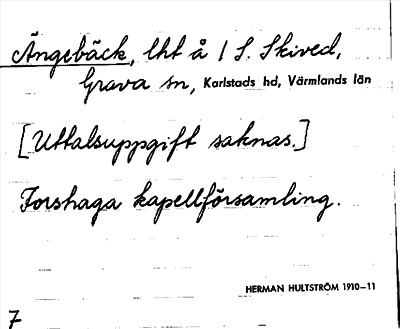 Ängebäck, lht å 1 S. Skived,
Grava sn, Karlstads hd, Värmlands län
[Uttalsuppgift saknas.]
Forshaga kapellförsamling.
HERMAN HULTSTRÖM 1910–11
7